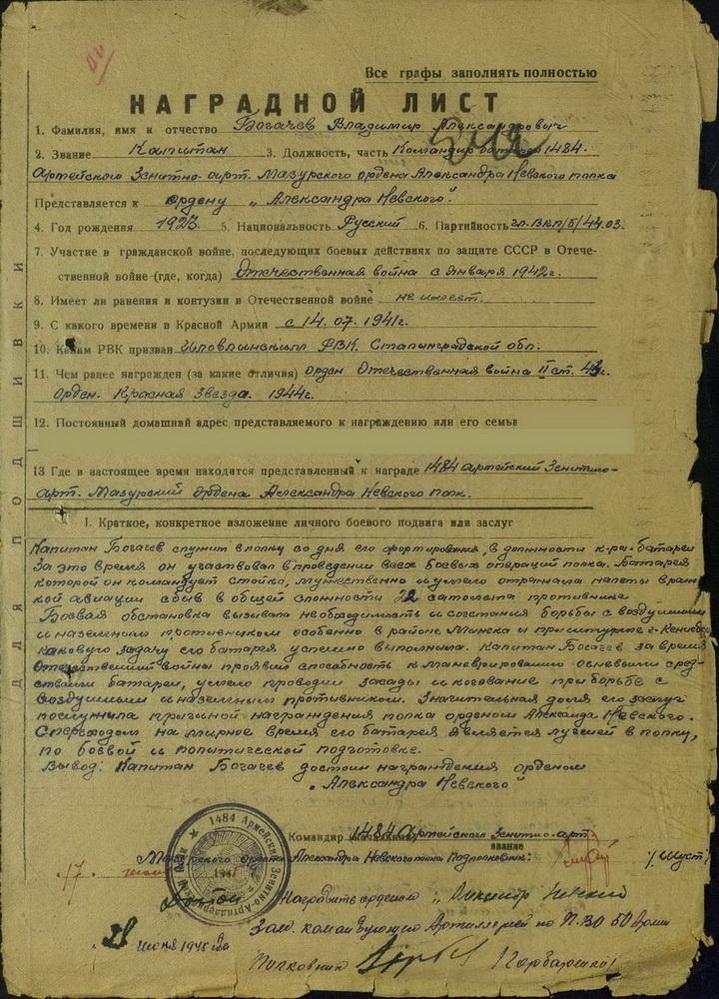 Все графы заполнять полностью
НАГРАДНОЙ ЛИСТ
1. Фамилия, имя и отчество Богачев Владимир Александрович
2. Звание Капитан 3. Должность, часть Командир батареи 1484
Армейского Зенитно-арт. Мазурского ордена Александра Невского полка
Представляется к ордену „Александра Невского".
4. Год рождения 1923 5. Национальность Русский 6. Партийность чл. ВКП/б/ 44.03.
7. Участие в гражданской войне, последующих боевых действиях по защите СССР в Отече-
ственной войне (где, когда) Отечественная война с января 1942г.
8. Имеет ли ранения и контузии в Отечественной войне не имеет.
9. С какого времени в Красной Армии с 14.07.1941г.
10. Каким РВК призван Иловлинским РВК. Сталинградской обл.
11. Чем ранее награжден (за какие отличия) орден Отечественная война II ст. 43г.
Орден. Красная Звезда. 1944г.
12. Постоянный домашний адрес представляемого к награждению или его семьи
13 Где в настоящее время находится представленный к награде 1484 армейский Зенитно-
арт. Мазурский ордена Александра Невского полк.
I. Краткое, конкретное изложение личного боевого подвига или заслуг
Капитан Богачев служит в полку со дня его формирования, в должности к-ра батареи
За это время он участвовал в проведении всех боевых операций полка. Батарея
которой он командует стойко, мужественно и умело отражала налеты вражес
кой авиации сбив в общей сложности 22 самолета противника
Боевая обстановка вызывала необходимость и сочетания борьбы с воздушным
и наземным противником особенно в районе Минска и при штурме г. Кенигсберг
каковую задачу его батарея успешно выполнила. Капитан Богачев за время
Отечественной войны проявил способность к маневрированию огневыми сред-
ствами батареи, умело проводил засады и кочевание при борьбе с
воздушным и наземным противником. Значительная доля его заслуг
послужила причиной награждения полка орденом Александра Невского.
С переходом на мирное время его батарея является лучшей в полку,
по боевой и политической подготовке.
Вывод: Капитан Богачев достоин награждения орденом
„Александра Невского"
Командир 1484 Армейского Зенитно-арт.
звание
Мазурского ордена Александра Невского полка Подполковник: /Шуст/
17. июня
1484 Армейский Зенитно-Артиллерийский Полк
Достоин Награждения орденом „Александр Невский
Зам. командующего Артиллерией по ПВО 50 Армии
28 июня 1945г
Полковник /Горбашенко/
ДЛЯ ПОДШИВКИ